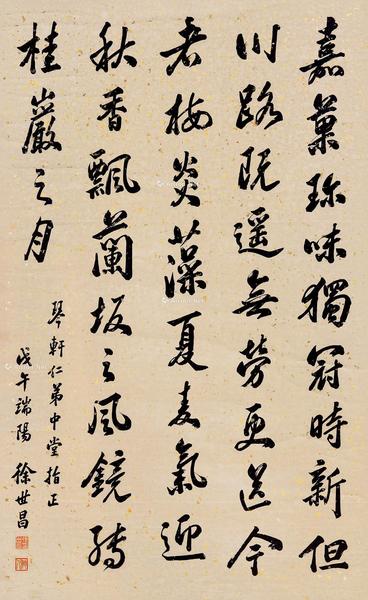 嘉菓珎味獨冠時新但
川路既遥無勞更送今
者梅炎藻夏麦氣迎
秋香飄蘭坂之風鏡轉
桂巖之月
琴軒仁弟中堂指正
戊午端陽 徐世昌